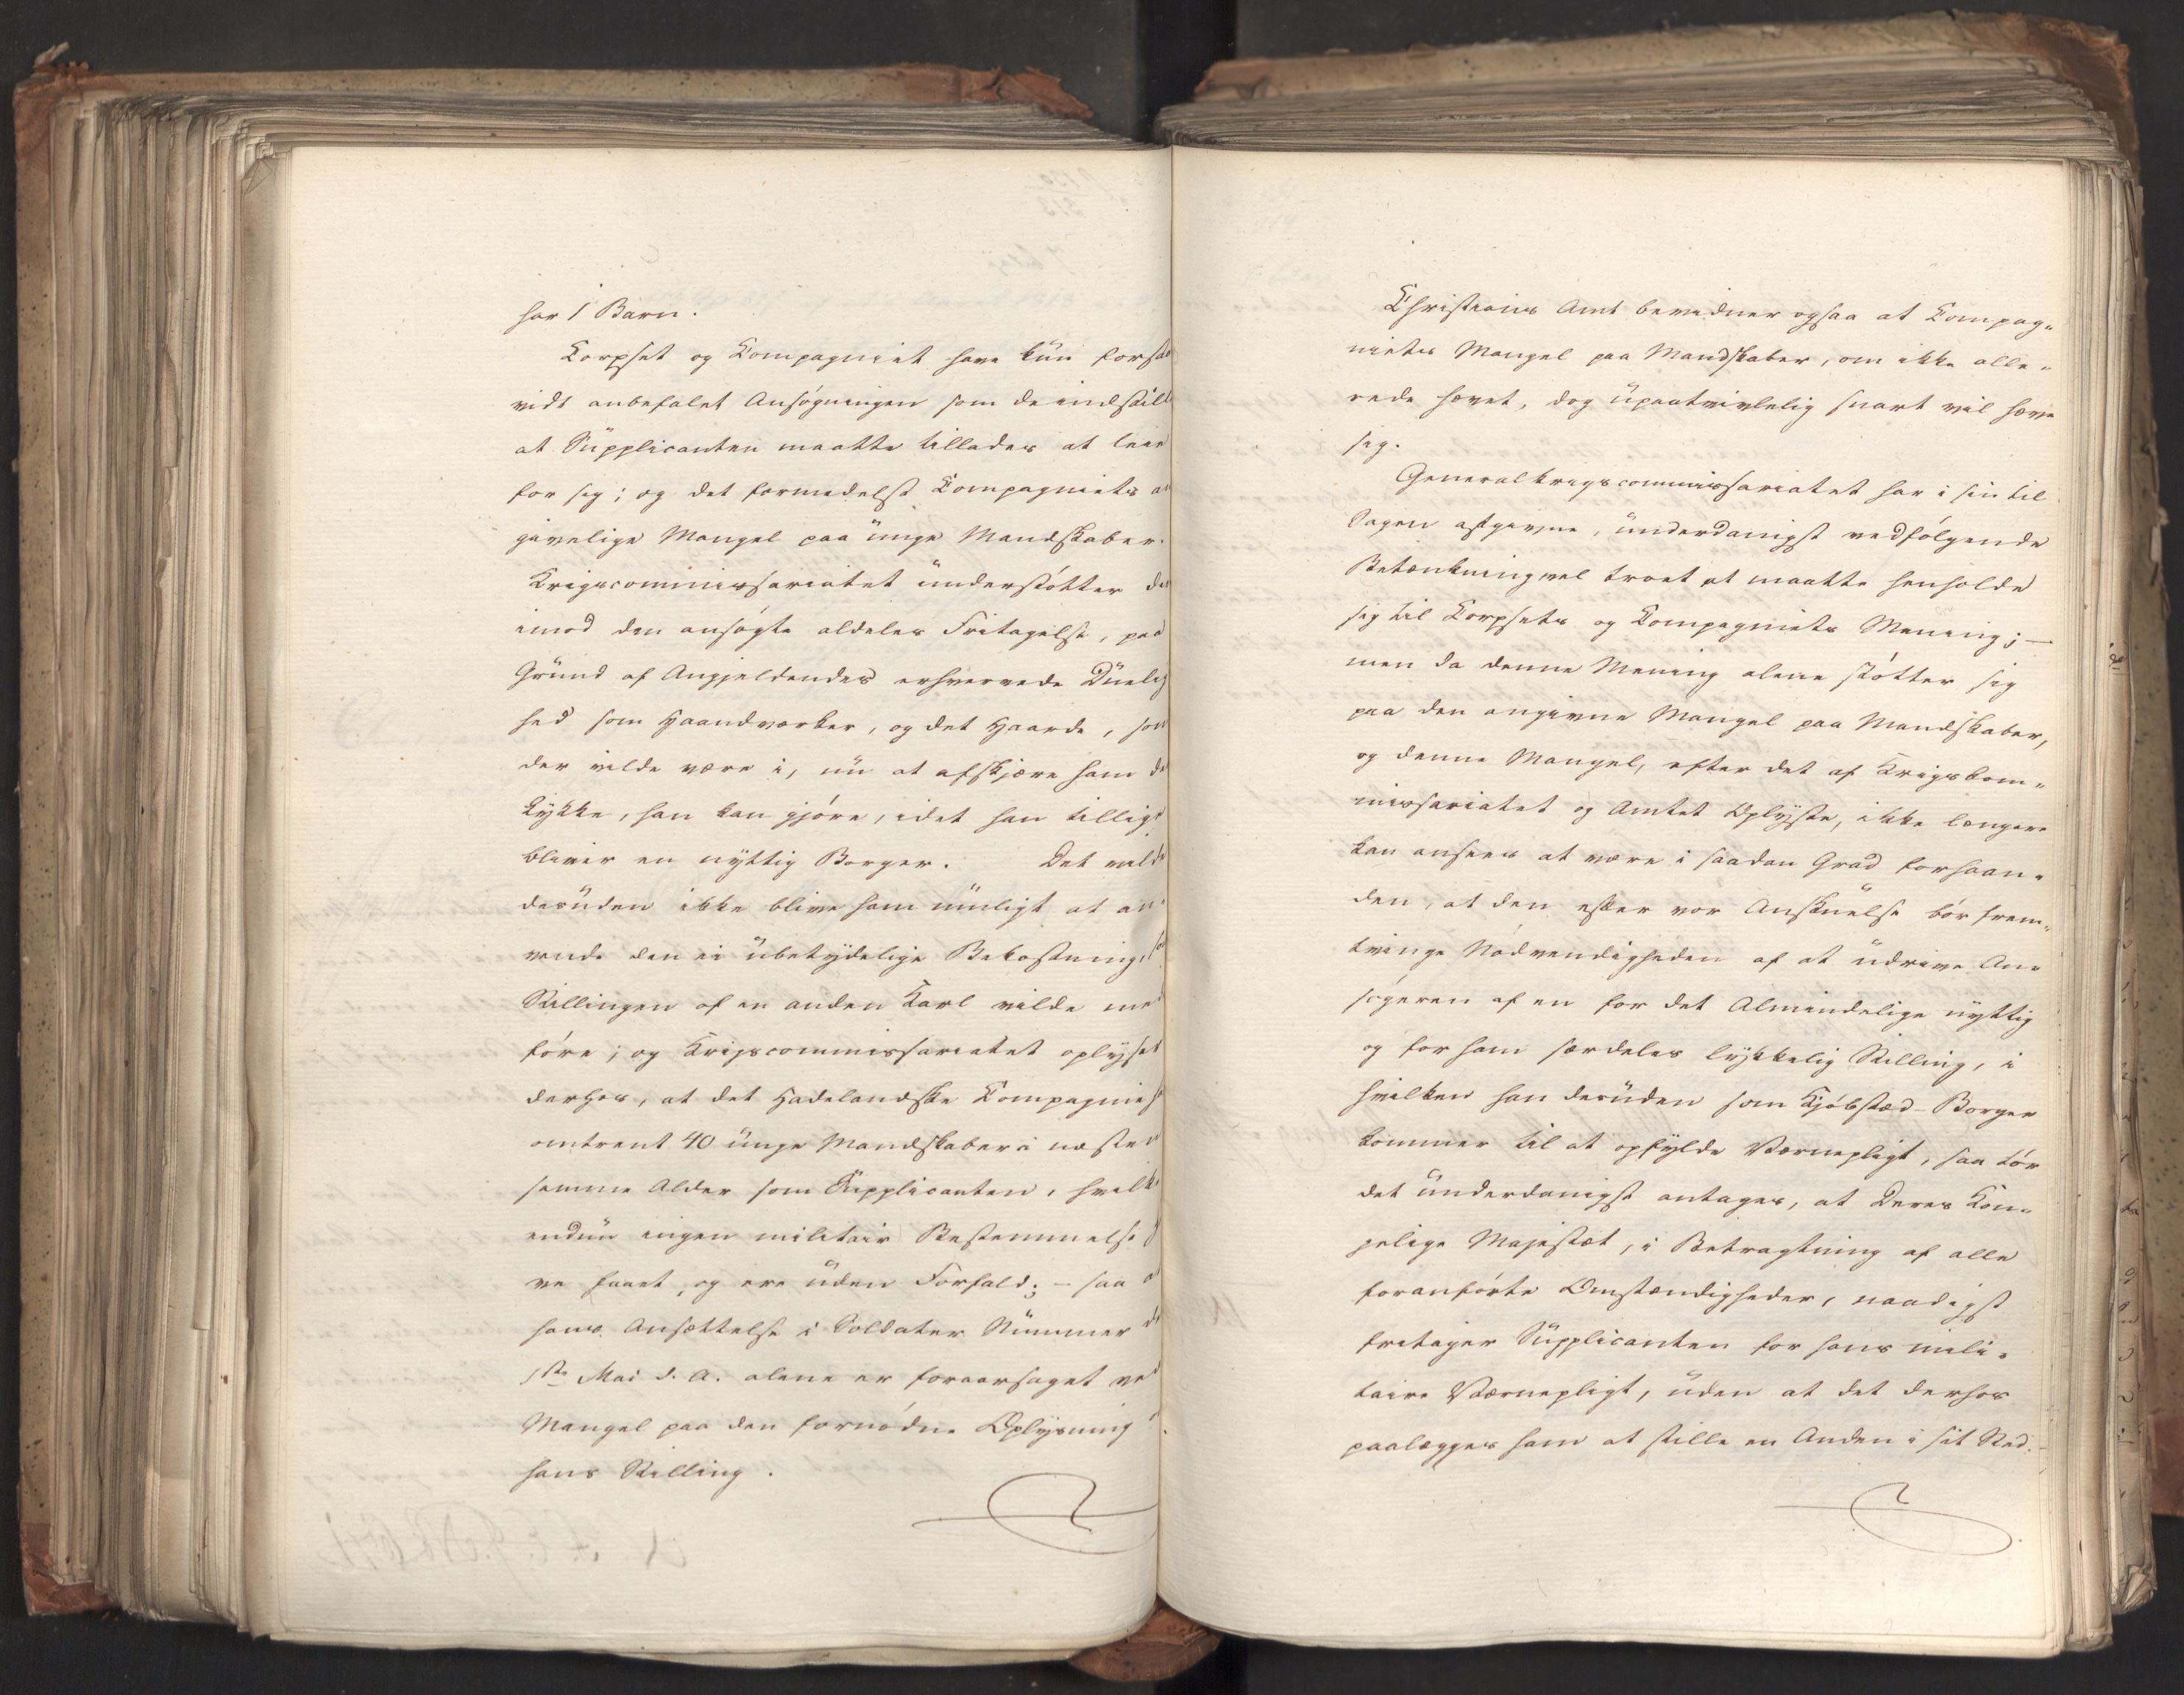 har 1 Barn.
Corpset og Compagniet have kun forsaa
vidt anbefalet Ansøgningen som de indstille
at Supplicanten maatte tillades at leie
for sig; og det formedelst Compagniets an
givelige Mangel paa unge Mandskaber.
Krigscommissariatet understøtter der
imod den ansøgte aldeles Fritagelse, paa
Grund af Angjeldendes erhvervede Duelig
hed som Haandværker, og det Haarde, som
der vilde være i, nu at afskjære ham den
Lykke, han kan gjøre, idet han tillige
bliver en nyttig Borger. Det vilde
desuden ikke blive ham muligt at an
vende den ei ubetydelige Bekostning, som
Stillingen af en anden Karl vilde med
føre; og Krigscommissariatet oplyser
derhos, at det Hadelandske Compagnie
omtrent 40 unge Mandskaber i næsten
samme Alder som Supplicanten, hvilke
endnu ingen militair Bestemmelse ha
ve faaet, og ere uden Forfald; – saa at
hans Ansættelse i Soldater Nummer
1ste Mai d. A. alene er foraarsaget ved
Mangel paa den fornødne Oplysning
hans Stilling.
Christians Amt bevidner ogsaa at Compag-
niets Mangel paa Mandskaber, om ikke alle-
rede hævet, dog upaatvivlelig snart vil hæve
sig.
Generalkrigscommissariatet har i sin til
Sagen afgivne, underdanigst vedfølgende
Betænkning vel troet at maatte henholde
sig til Corpsets og Compagniets Mening; –
men da denne Mening alene støtter sig
paa den angivne Mangel paa Mandskaber,
og denne Mangel, efter det af Krigskom-
missariatet og Amtet Oplyste, ikke længere
kan ansees at være i saadan Grad forhaan-
den, at den efter vor Anskuelse bør frem-
tvinge Nødvendigheden af at udrive An-
søgeren af en for det Almindelige nyttig
og for ham særdeles lykkelig Stilling, i
hvilken han desuden som Kjøbstæd-Borger
kommer til at opfylde Værnepligt, saa tør
det underdanigst antages, at Deres Kon-
gelige Majestæt, i Betragtning af alle
foranførte Omstændigheder, naadigst
fritager Supplicanten for hans mili-
taire Værnepligt, uden at det derhos
paalægges ham at stille en Anden i sit Sted.